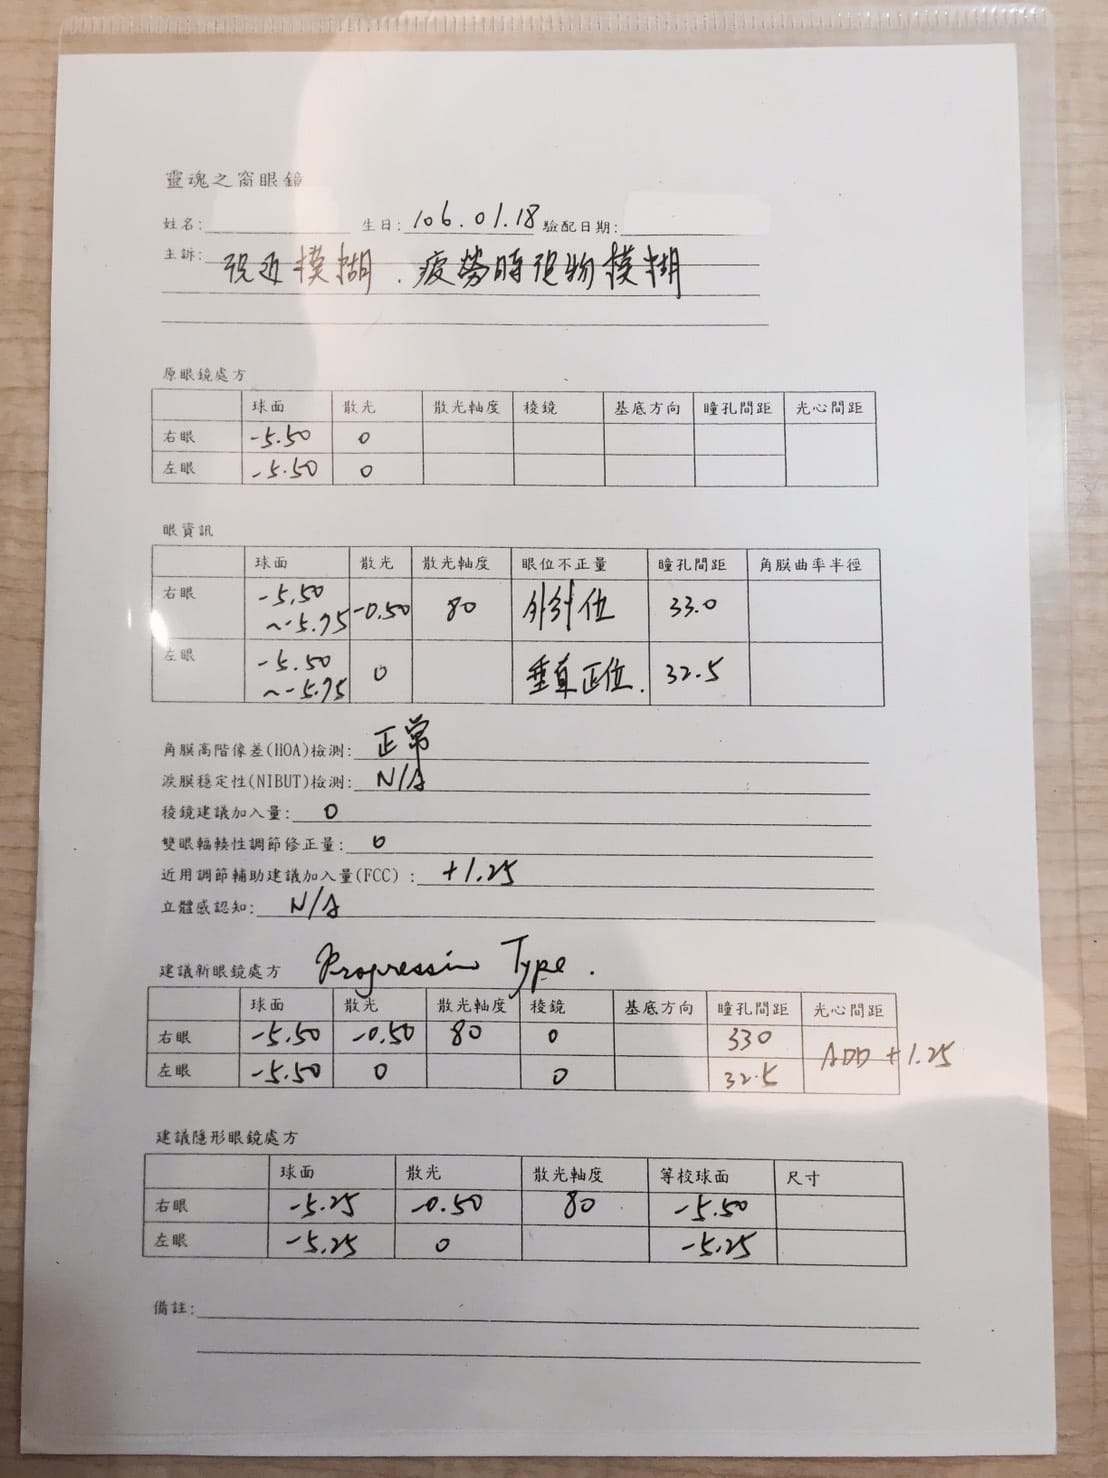 靈魂之窗眼鏡
姓名: 生日: 106.01.18 驗配日期:
主訴: 視近模糊.疲勞時視物模糊
原眼鏡處方
球面 散光 散光軸度 稜鏡 基底方向 瞳孔間距 光心間距
右眼 -5.50 0
左眼 -5.50 0
眼資訊
球面 散光 散光軸度 眼位不正量 瞳孔間距 角膜曲率半徑
右眼 -5.50 ~-5.75 -0.50 80 外斜位 33.0
左眼 -5.50 ~-5.75 0 垂直正位. 32.5
角膜高階像差(HOA)檢測: 正常
淚膜穩定性(NIBUT)檢測: N/A
稜鏡建議加入量: 0
雙眼輻輳性調節修正量: 0
近用調節輔助建議加入量(FCC) : +1.25
立體感認知: N/A
建議新眼鏡處方 Progressive Type.
球面 散光 散光軸度 稜鏡 基底方向 瞳孔間距 光心間距
右眼 -5.50 -0.50 80 0 330
左眼 -5.50 0 0 32.5 ADD +1.25
建議隱形眼鏡處方
球面 散光 散光軸度 等校球面 尺寸
右眼 -5.25 -0.50 80 -5.50
左眼 -5.25 0 -5.25
備註: